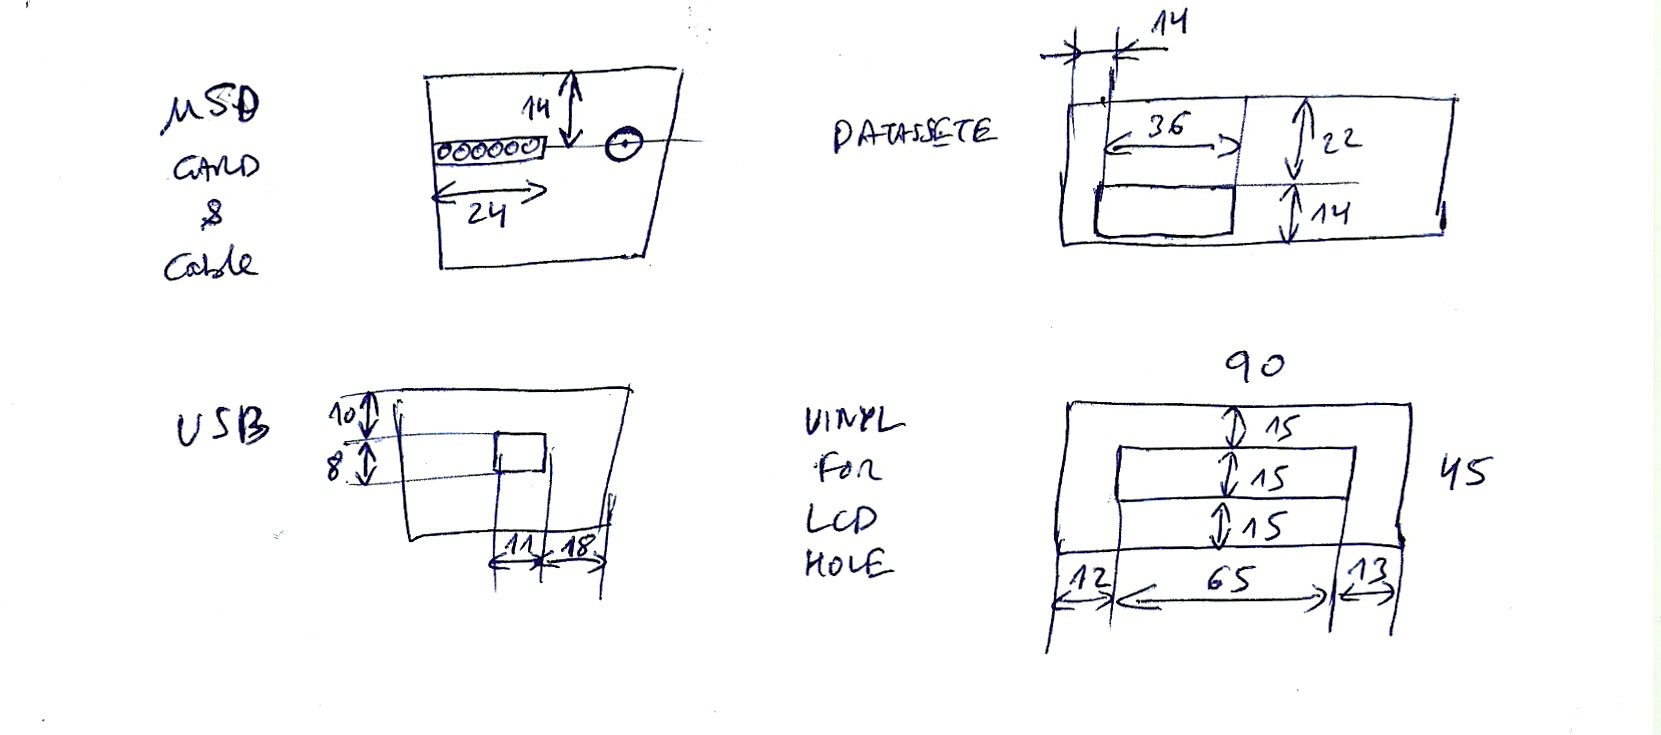 μSD
CARD
&
Cable
14
24
14
DATASSETE
36
22
14
USB
10
8
11
18
VINYL
FOR
LCD
HOLE
90
15
15
45
15
12
65
13